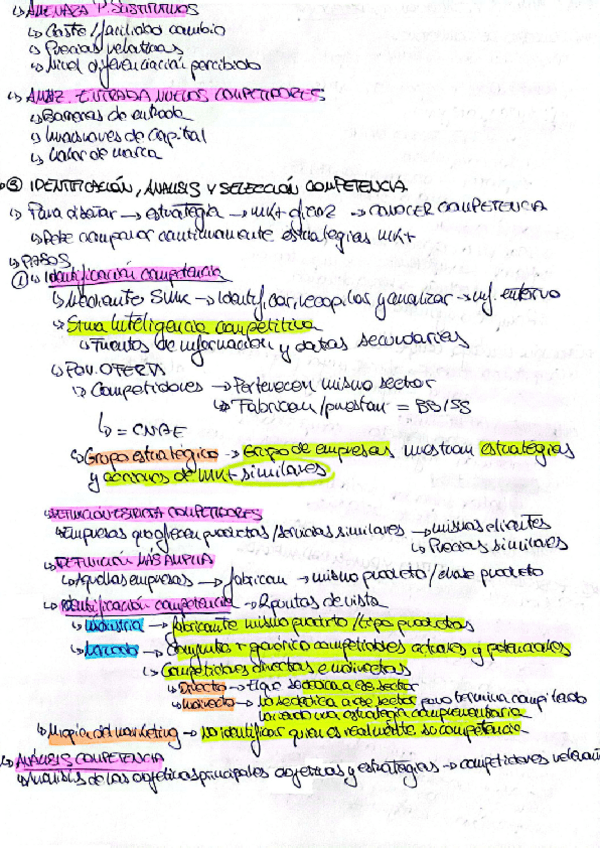 ↳ AMENAZA P. SUSTITUTIVOS
↳ Coste/facilidad cambio
↳ Precios relativos
↳ Nivel diferenciación percibido
↳ AMZ. ENTRADA NUEVOS COMPETIDORES
↳ Barreras de entrada
↳ Inversiones de capital
↳ Valor de marca
③ IDENTIFICACIÓN, ANÁLISIS Y SELECCIÓN COMPETENCIA
↳ Para diseñar → estrategia → MK+ → CONOCER COMPETENCIA
↳ Debe comparar continuamente estrategias MK+
↳ PASOS
① ↳ Identificación competencia
↳ Mediante SIMK → Identificar, recopilar y analizar → inf. entorno
↳ Sma Inteligencia competitiva
↳ Fuentes de información y datos secundarios
↳ P.OV. OFERTA
↳ Competidores → Pertenecen mismo sector
↳ Fabrican/prestan = BB/SS
↳ = CNAE
↳ Grupo estratégico → Grupo de empresas muestran estratégias
y acciones de MK+ similares
↳ DEFINICIÓN ESTRICTA COMPETIDORES
↳ Empresas que ofrecen productos/servicios similares → mismos clientes
↳ Precios similares
↳ DEFINICIÓN MÁS AMPLIA
↳ Aquellas empresas → fabrican → mismo producto/clase producto
↳ Identificación competencia → 2 puntos de vista
↳ Industria → fabricante mismo producto/tipo productos
↳ Mercado → Conjunto + genérico competidores actuales y potenciales
↳ Competidores directos e indirectos
↳ Directo → El que se dedica a ese sector
↳ Indirecto → No se dedica a ese sector pero termina compitiendo
llevando una estrategia complementaria
↳ Miopía del marketing → No identificar quien es realmente su competencia
↳ ANÁLISIS COMPETENCIA
↳ Análisis de los objetivos principales objetivos y estrategias → competidores